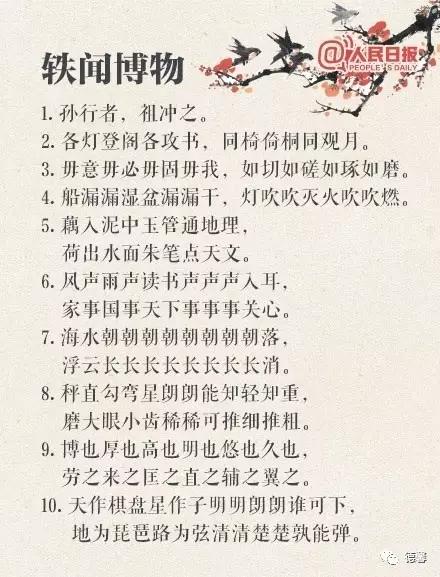 @人民日报
PEOPLE'S DAILY
轶闻博物
1. 孙行者，祖冲之。
2. 各灯登阁各攻书，同椅倚桐同观月。
3. 毋意毋必毋固毋我，如切如磋如琢如磨。
4. 船漏漏湿盆漏漏干，灯吹吹灭火吹吹燃。
5. 藕入泥中玉管通地理，
荷出水面朱笔点天文。
6. 风声雨声读书声声声入耳，
家事国事天下事事事关心。
7. 海水朝朝朝朝朝朝朝朝落，
浮云长长长长长长长长消。
8. 秤直勾弯星朗朗能知轻知重，
磨大眼小齿稀稀可推细推粗。
9. 博也厚也高也明也悠也久也，
劳之来之匡之直之辅之翼之。
10. 天作棋盘星作子明明朗朗谁可下，
地为琵琶路为弦清清楚楚孰能弹。
德馨